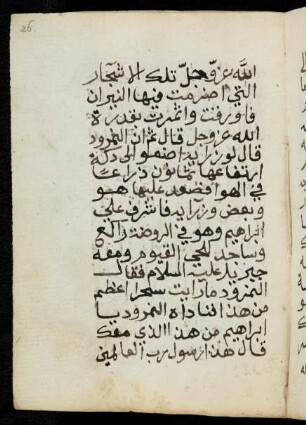 26.
الله عز وجل تلك الاشجار
التي اضرمت فيها النيران
فاورقت واثمرت بقدرة
الله عز وجل قال ثم ان النمرود
قال لوزرايه اصنعوا لي دكة
ارتفاعها ثمانون ذراعا
في الهوا فصعد عليها هو
وبعض وزرايه فاشرف على
ابراهيم وهو في الروضة راكع
وساجد للحي القيوم ومعه
جبريل عليه السلام فقال
النمرود ما رايت سحرا اعظم
من هذا فناداه النمرود يا
ابراهيم من هذا الذي معك
قال هذا رسول رب العالمين